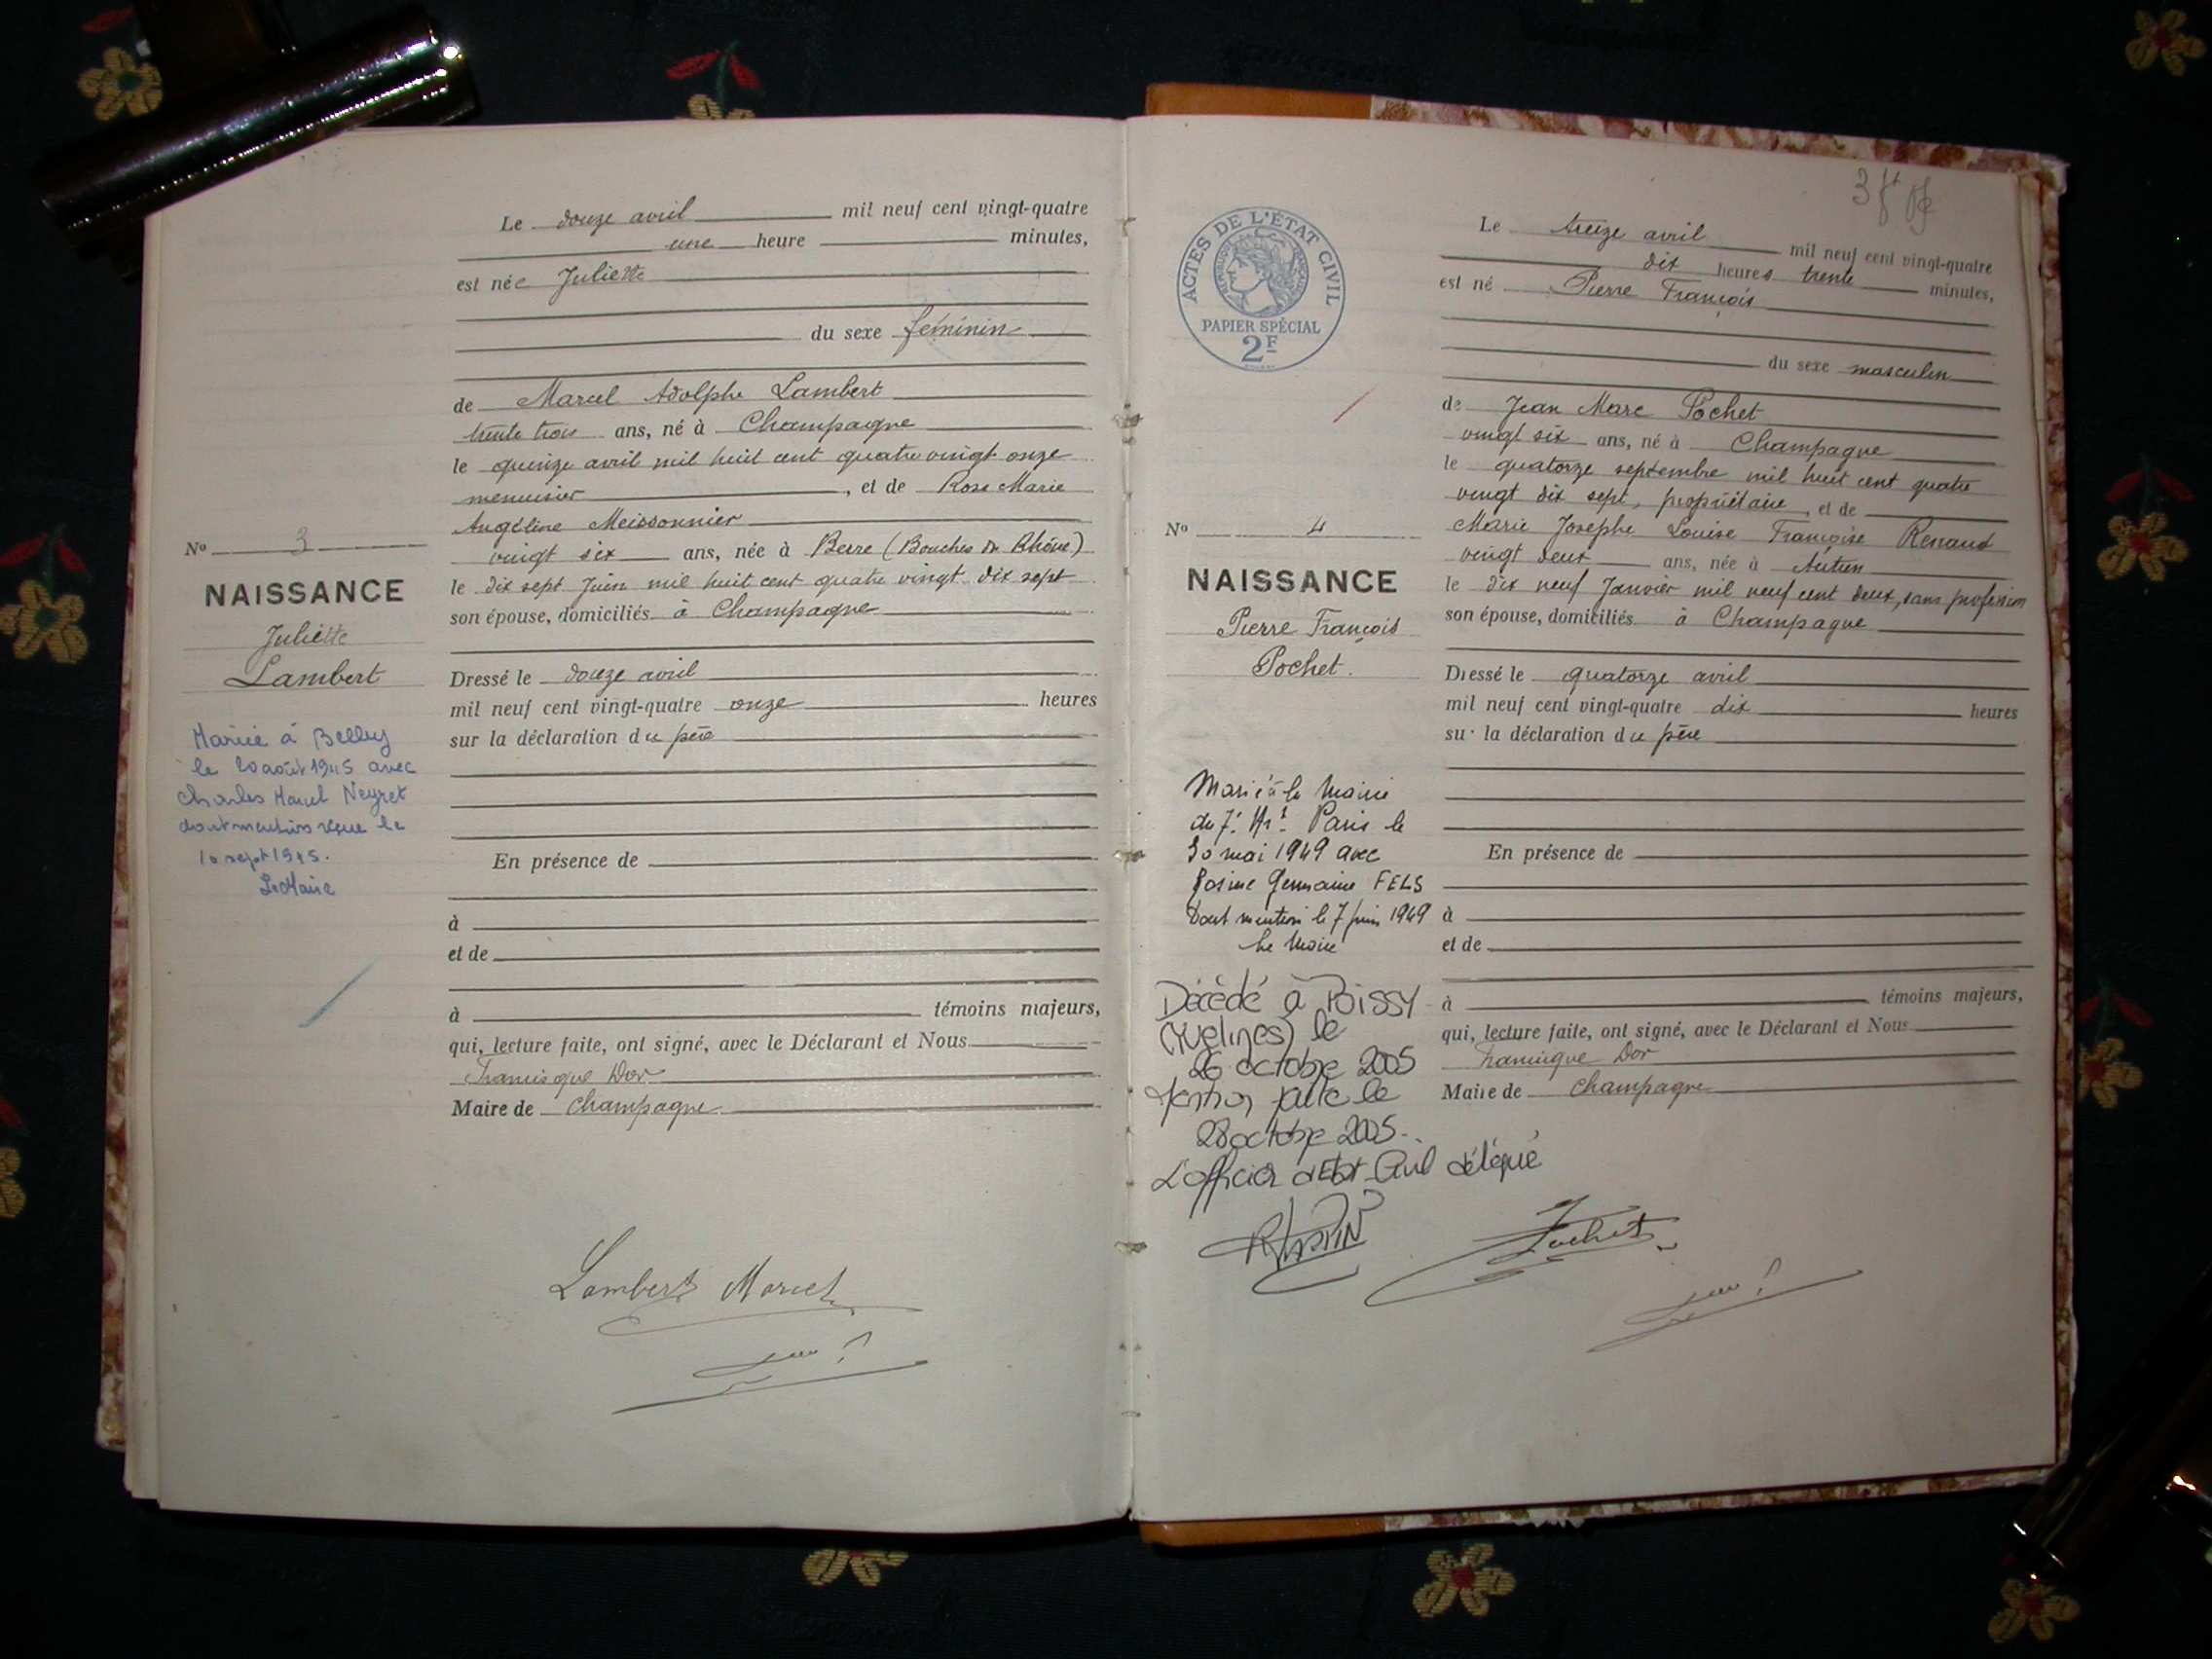 Le douze avril mil neuf cent vingt-quatre
une heure minutes,
est née Juliette
du sexe féminin
de Marcel Adolphe Lambert
trente trois ans, né à Champagne
le quinze avril mil huit cent quatre vingt onze
menuisier, et de Rose Marie
Angéline Meissonnier
vingt six ans, née à Berre (Bouches du Rhône)
le dix sept Juin mil huit cent quatre vingt dix sept
son épouse, domiciliés à Champagne
No 3
NAISSANCE
Juliette
Lambert
Dressé le douze avril
mil neuf cent vingt-quatre onze heures
sur la déclaration du père
Mariée à Belley
le 20 août 1945 avec
Charles Marcel Neyret
dont mention reçue le
10 sept 1945.
Le Maire
En présence de
à
et de
à témoins majeurs,
qui, lecture faite, ont signé, avec le Déclarant et Nous
Francisque Dor
Maire de Champagne
Lambert Marcel
3
ACTES DE L'ÉTAT CIVIL
RÉPUBLIQUE FRANÇAISE
PAPIER SPÉCIAL
2F
Le treize avril mil neuf cent vingt-quatre
dix heures trente minutes,
est né Pierre François
du sexe masculin
de Jean Marc Pochet
vingt six ans, né à Champagne
le quatorze septembre mil huit cent quatre
vingt dix sept, propriétaire, et de
Marie Josephe Louise Françoise Renaud
vingt deux ans, née à Autun
le dix neuf Janvier mil neuf cent deux, sans profession
son épouse, domiciliés à Champagne
No 4
NAISSANCE
Pierre François
Pochet.
Dressé le quatorze avril
mil neuf cent vingt-quatre dix heures
sur la déclaration du père
Marié à la Mairie
du 7e Arrt Paris le
30 mai 1949 avec
Germaine FELS
Dont mention le 7 juin 1949
Le Maire
En présence de
à
et de
à témoins majeurs,
qui, lecture faite, ont signé, avec le Déclarant et Nous
Francisque Dor
Maire de Champagne
Décédé à POISSY
(Yvelines) le
26 octobre 2005
Mention faite le
28 octobre 2005.
L'officier d'Etat Civil délégué
Pochet